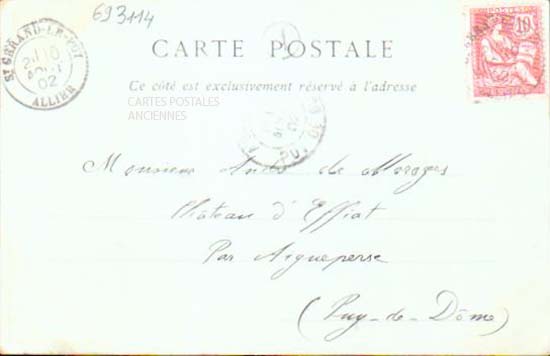 693114
St GERAND-LE-PUY
02
ALLIER
CARTE POSTALE
10
Ce côté est exclusivement réservé à l'adresse
CARTES POSTALES
ANCIENNES
Monsieur André de Moroges
Château d'Effiat
Par Aigueperse
(Puy-de-Dôme)